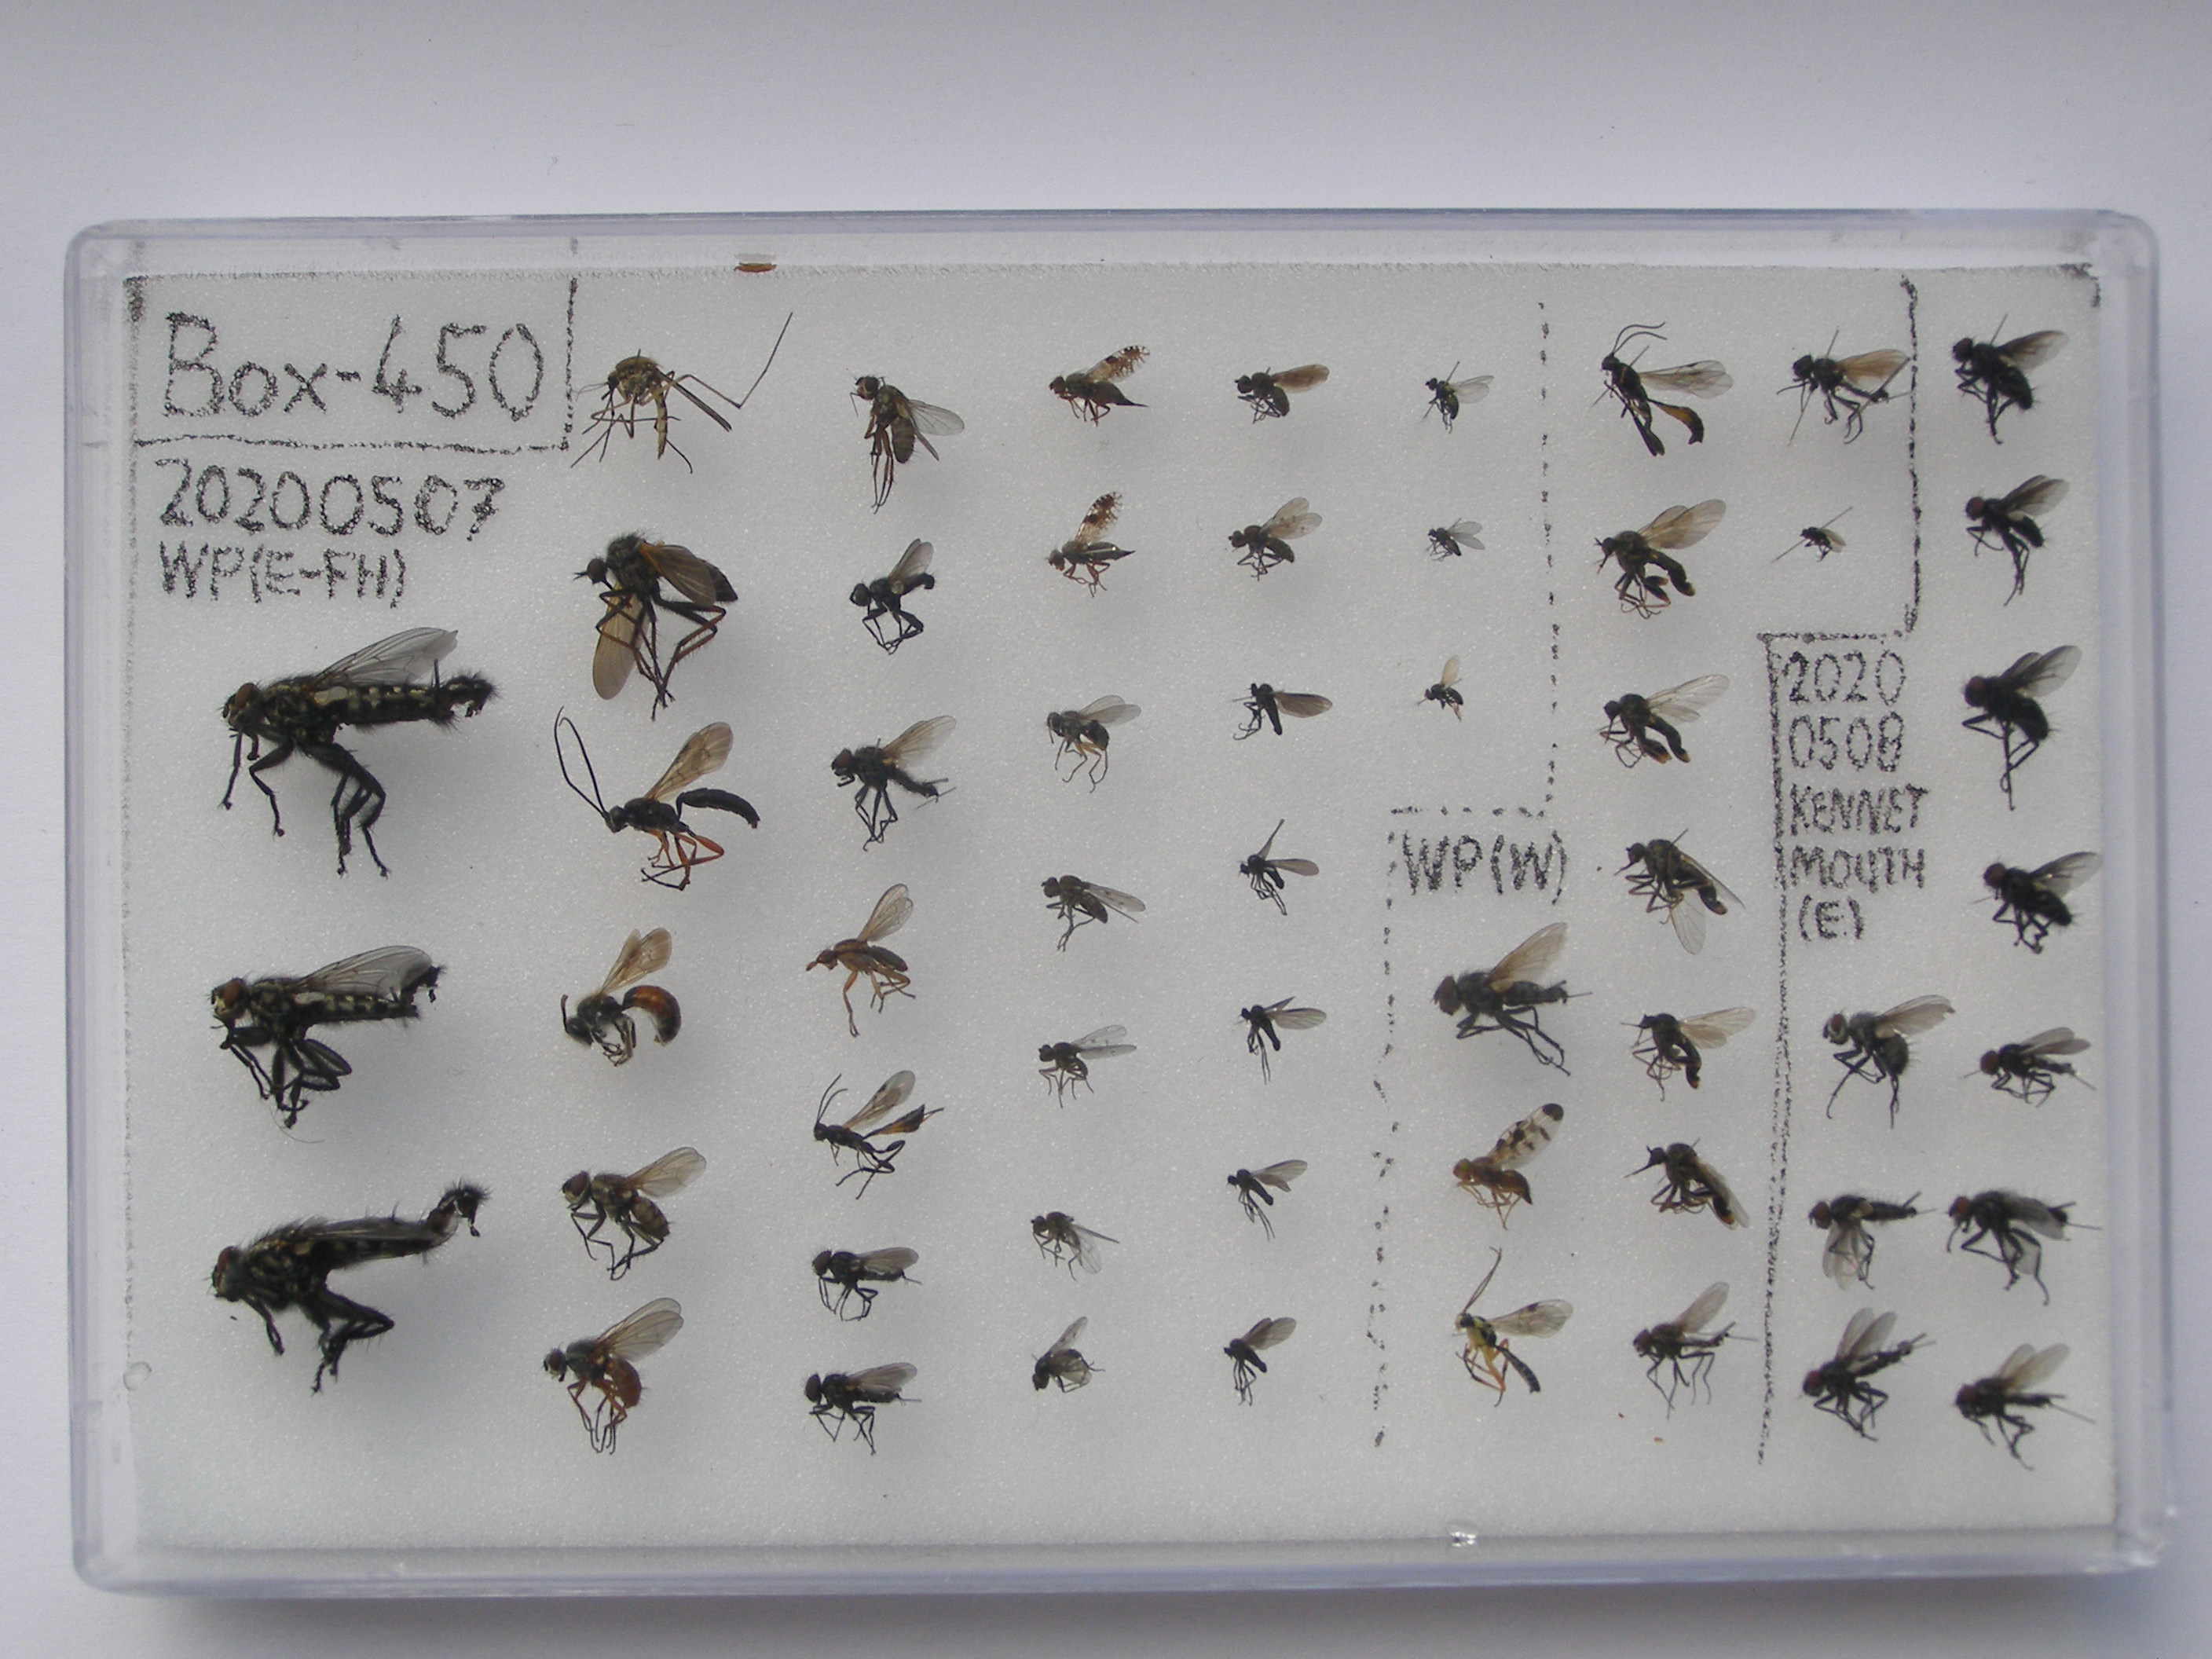 Box-450
20200507
WP(E-FH)
WP(W)
2020
0508
KENNET
MOUTH
(E)